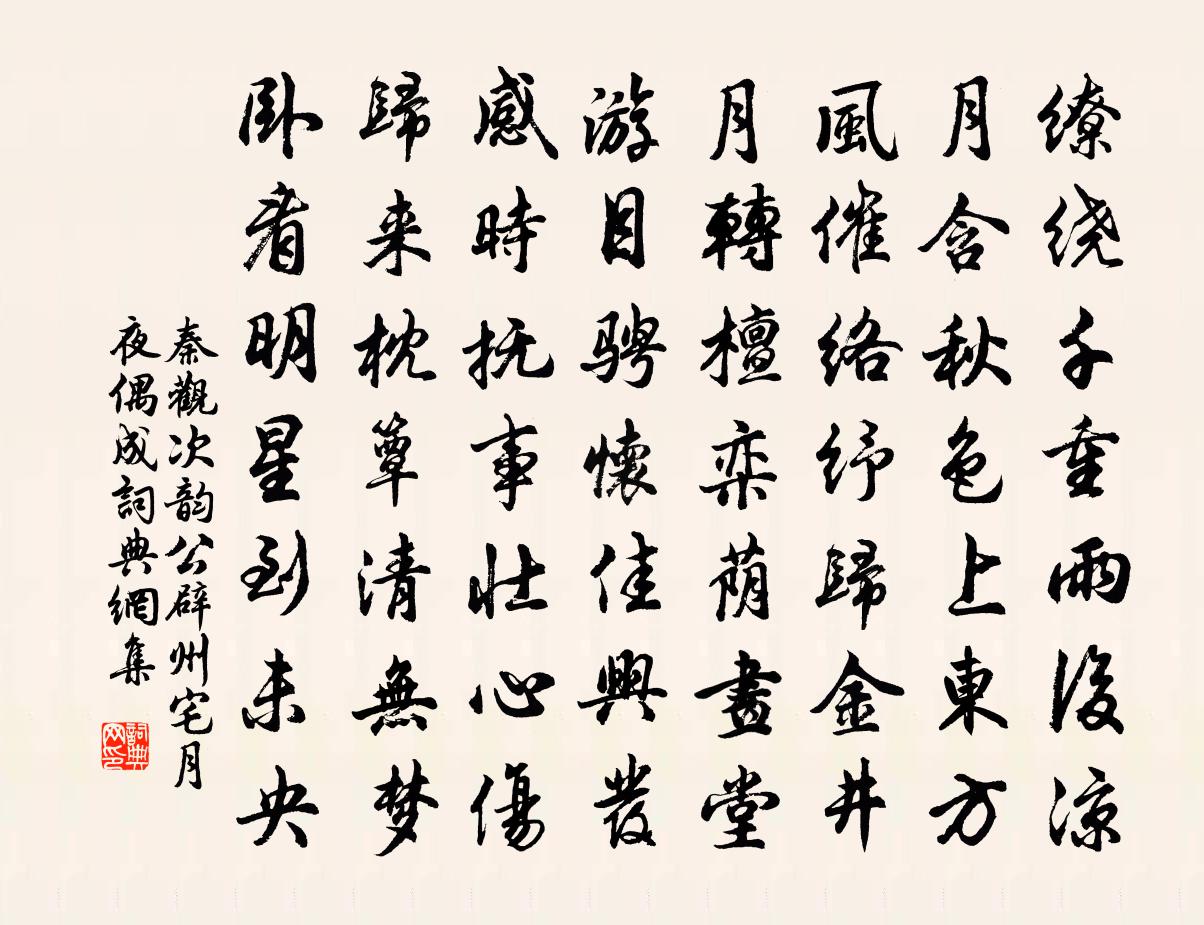 缭绕千重雨後凉
月含秋色上東方
風催络纾歸金井
月轉檀栾荫畫堂
游目骋懷佳興發
感時抚事壮心傷
歸来枕簟清無梦
卧看明星到未央
秦觀次韵公辟州宅月
夜偶成詞典網集
詞典网印